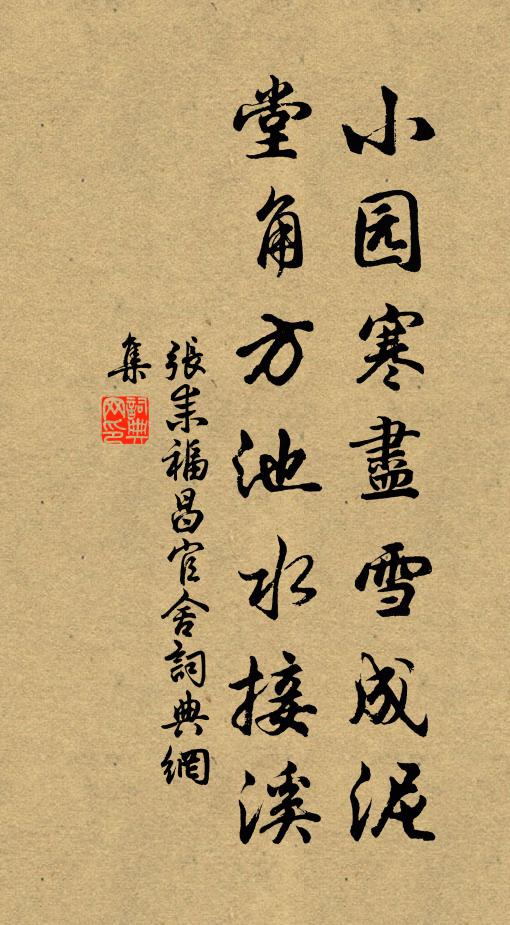 小园寒盡雪成泥
堂角方池水接溪
張耒福昌官舍詞典網
集
詞典
网印